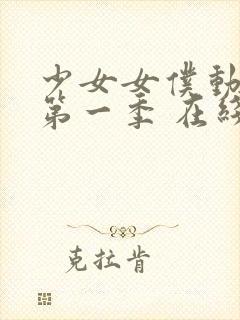 少女女僕動
第一季 在綫
克拉肯